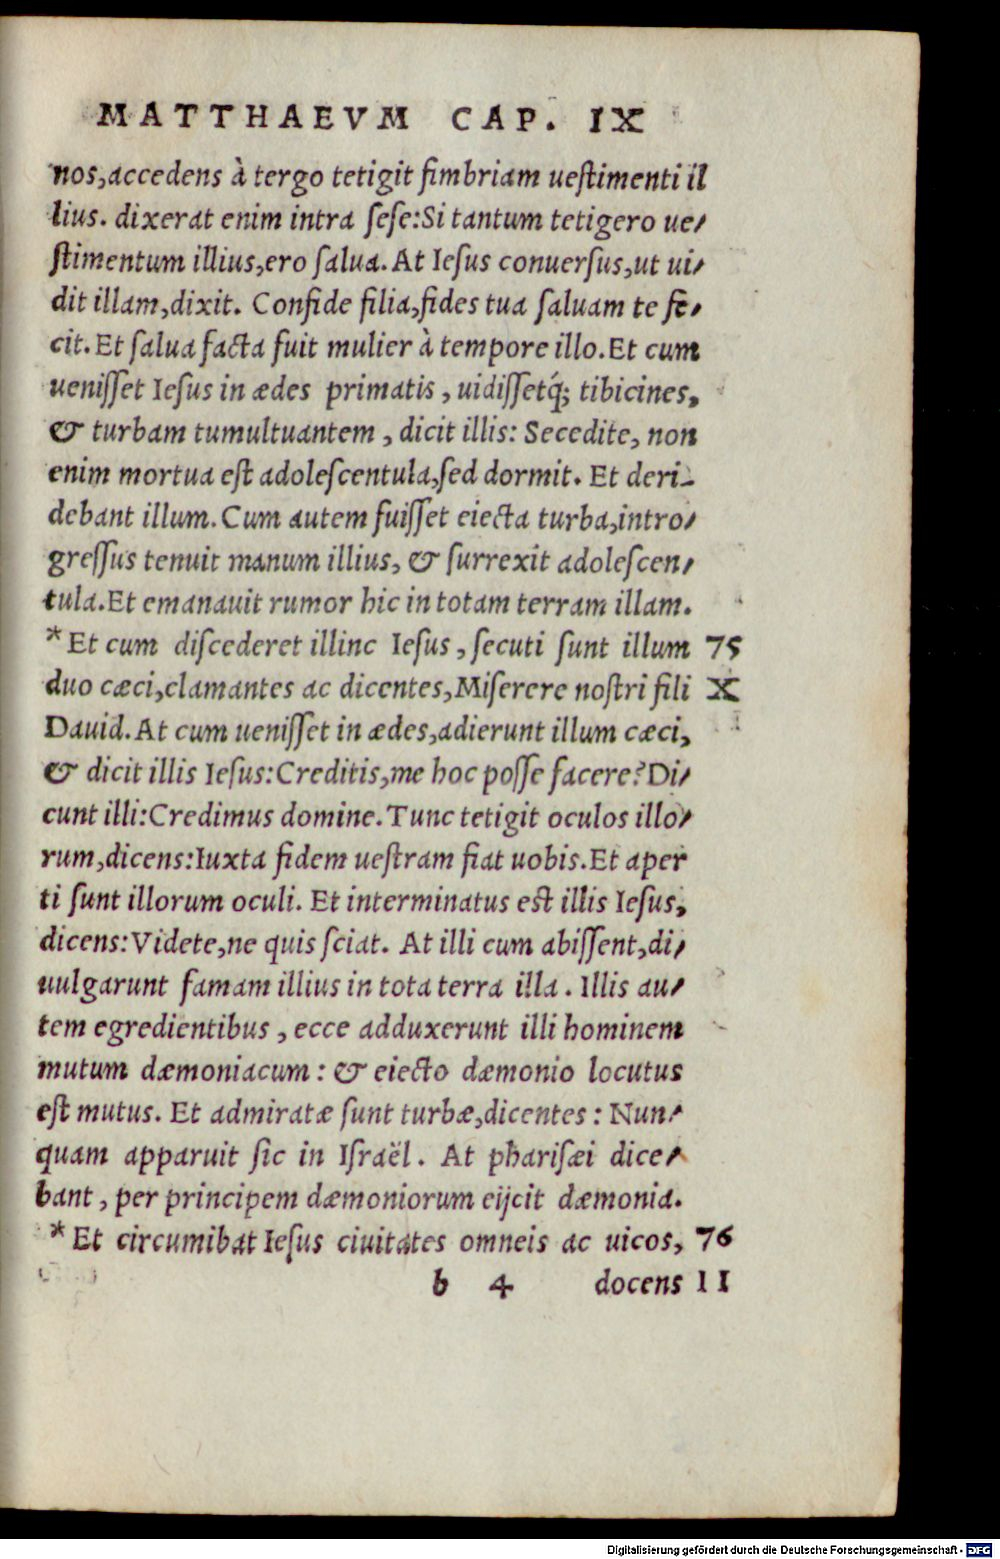 MATTHAEVM CAP. IX
nos,accedens à tergo tetigit fimbriam ueſtimenti il
lius. dixerat enim intra ſeſe:Si tantum tetigero ue-
ſtimentum illius,ero ſalua. At Ieſus conuerſus,ut ui-
dit illam,dixit. Confide filia,fides tua ſaluam te fe-
cit. Et ſalua facta fuit mulier à tempore illo. Et cum
ueniſſet Ieſus in ædes primatis, uidiſſetq́; tibicines,
& turbam tumultuantem, dicit illis: Secedite, non
enim mortua eſt adoleſcentula,ſed dormit. Et deri-
debant illum. Cum autem fuiſſet eiecta turba,intro-
greſſus tenuit manum illius, & ſurrexit adoleſcen-
tula. Et emanauit rumor hic in totam terram illam.
*Et cum diſcederet illinc Ieſus, ſecuti ſunt illum 75
duo cæci,clamantes ac dicentes,Miſerere noſtri fili X
Dauid. At cum ueniſſet in ædes,adierunt illum cæci,
& dicit illis Ieſus:Creditis,me hoc poſſe facere? Di-
cunt illi:Credimus domine. Tunc tetigit oculos illo-
rum,dicens:Iuxta fidem ueſtram fiat uobis. Et aper
ti ſunt illorum oculi. Et interminatus eſt illis Ieſus,
dicens:Videte,ne quis ſciat. At illi cum abiſſent,di-
uulgarunt famam illius in tota terra illa. Illis au-
tem egredientibus, ecce adduxerunt illi hominem
mutum dæmoniacum: & eiecto dæmonio locutus
eſt mutus. Et admiratæ ſunt turbæ,dicentes: Nun-
quam apparuit ſic in Iſraël. At phariſæi dice-
bant, per principem dæmoniorum eijcit dæmonia.
*Et circumibat Ieſus ciuitates omneis ac uicos, 76
b 4 docens 11
Digitalisierung gefördert durch die Deutsche Forschungsgemeinschaft - DFG